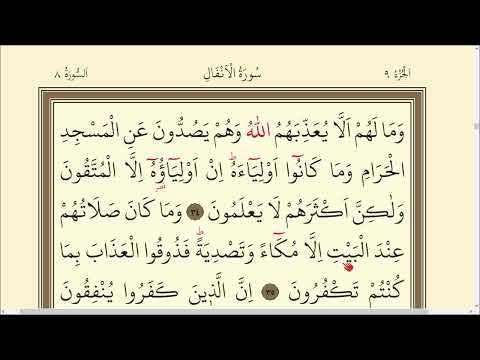 اَلْجُزْءُ ٩ سُورَةُ الْاَنْفَالِ اَلسُّورَةُ ٨
وَمَا لَهُمْ اَلَّا يُعَذِّبَهُمُ اللّٰهُ وَهُمْ يَصُدُّونَ عَنِ الْمَسْجِدِ
الْحَرَامِ وَمَا كَانُٓوا اَوْلِيَٓاءَهُۜ اِنْ اَوْلِيَٓاؤُ۬هُٓ اِلَّا الْمُتَّقُونَ
وَلٰكِنَّ اَكْثَرَهُمْ لَا يَعْلَمُونَ ﴿٣٤﴾ وَمَا كَانَ صَلَاتُهُمْ
عِنْدَ الْبَيْتِ اِلَّا مُكَٓاءً وَتَصْدِيَةًۜ فَذُوقُوا الْعَذَابَ بِمَا
كُنْتُمْ تَكْفُرُونَ ﴿٣٥﴾ اِنَّ الَّذ۪ينَ كَفَرُوا يُنْفِقُونَ